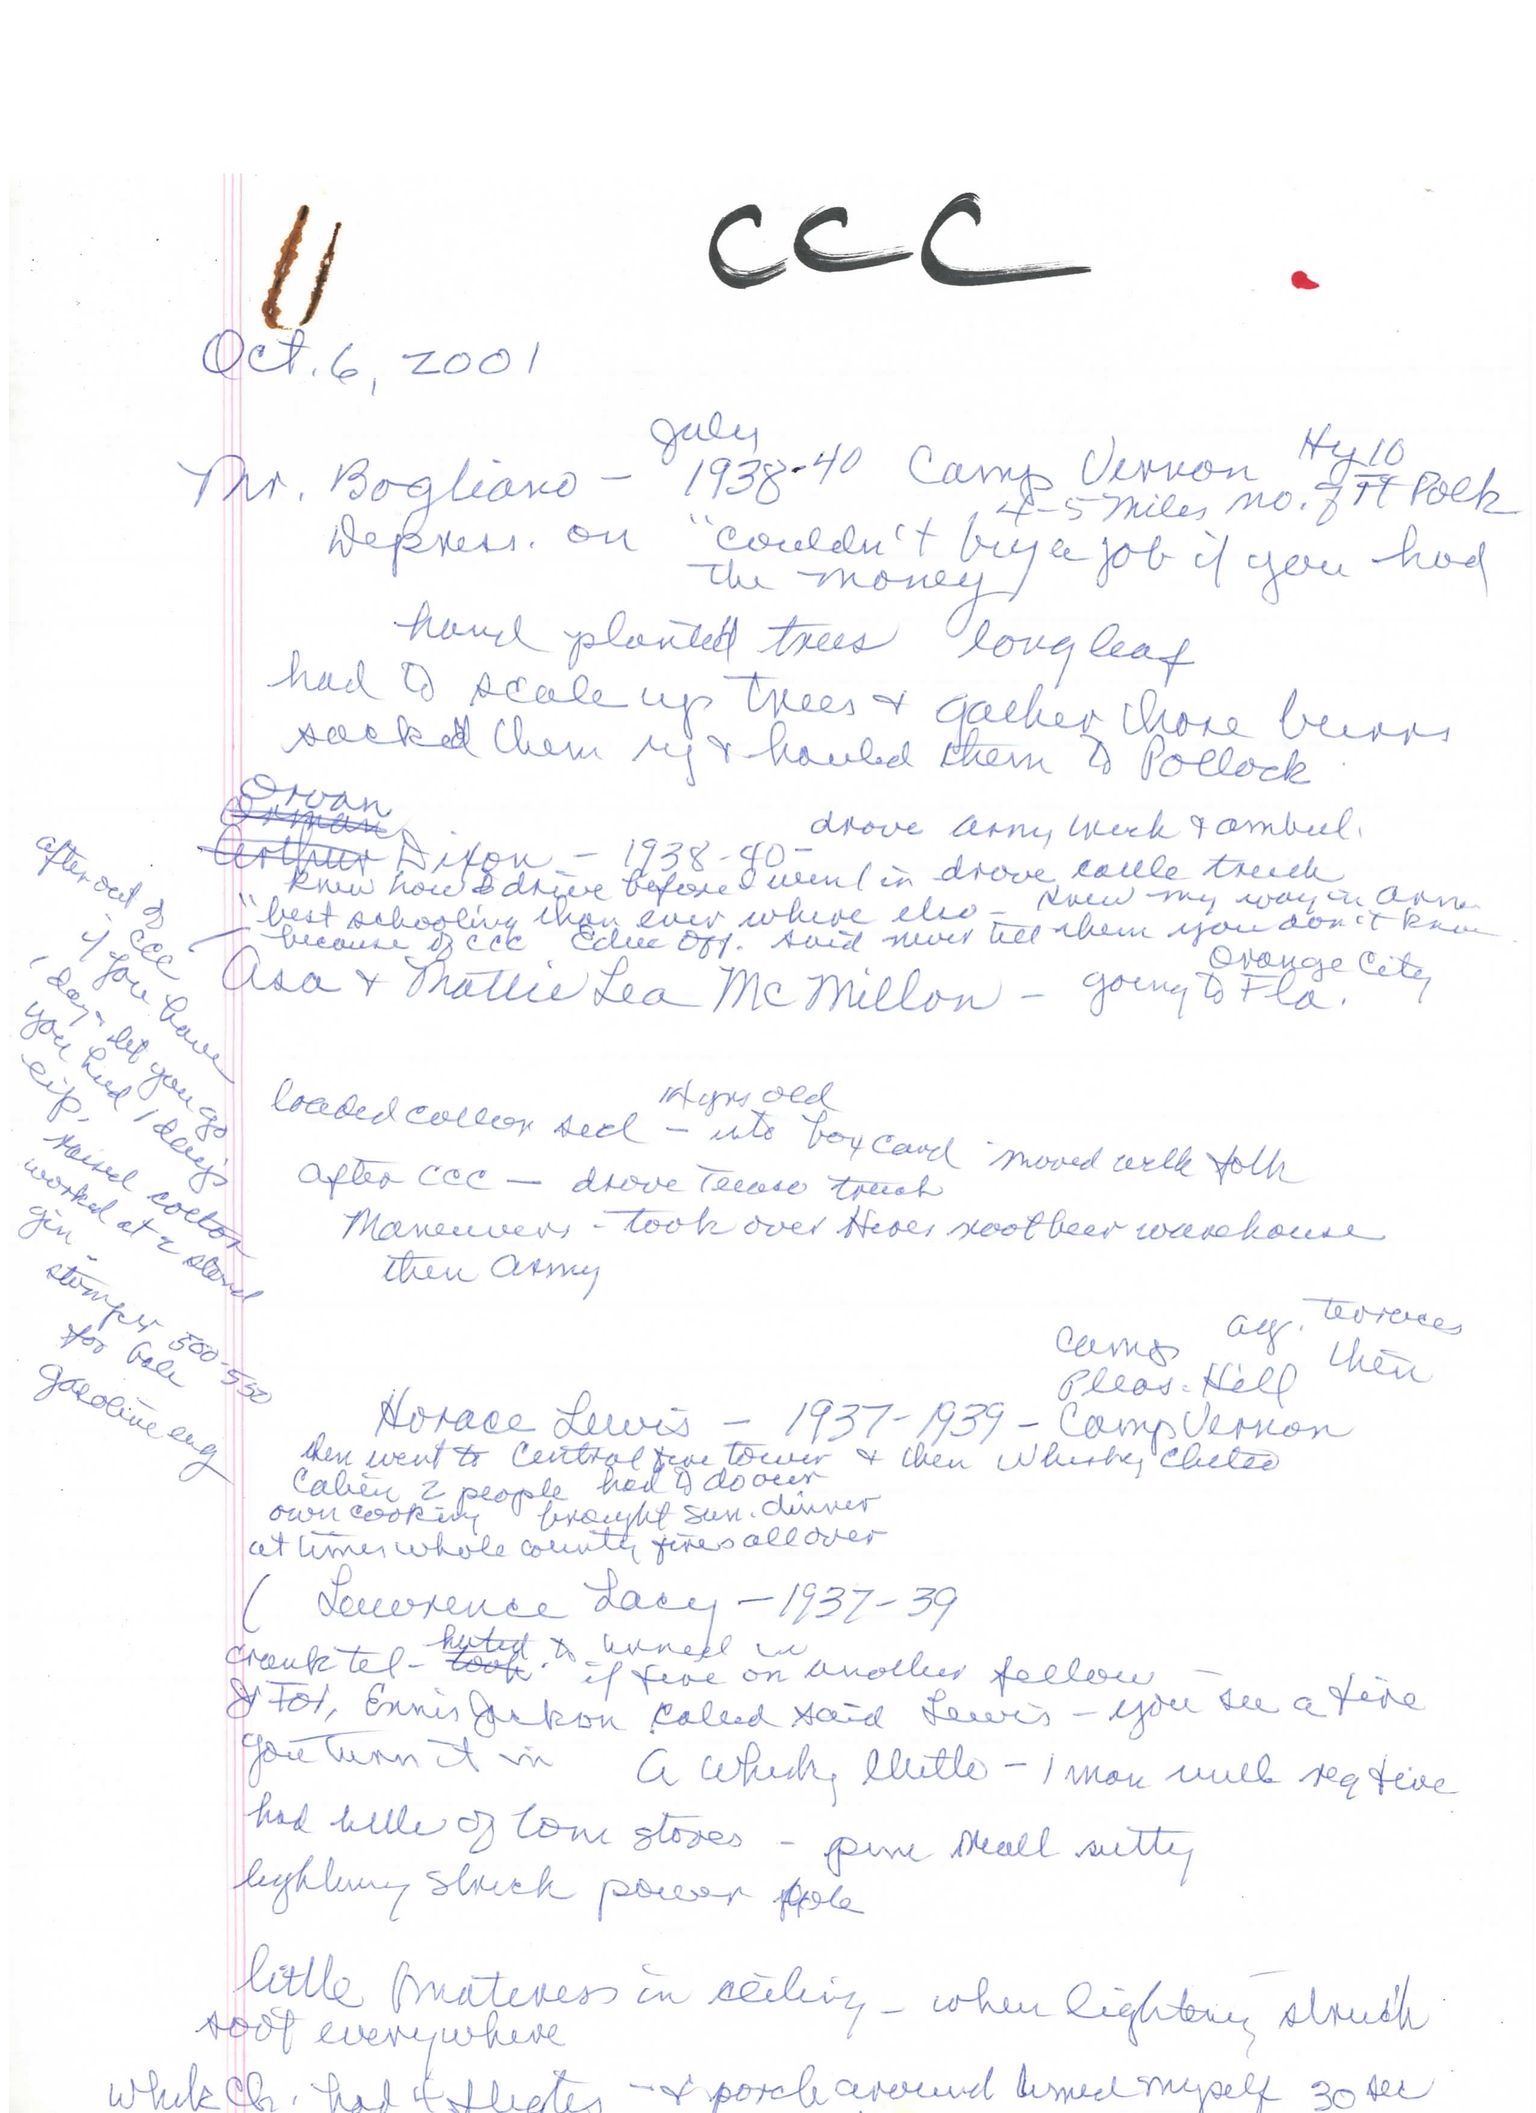 CCC
Oct. 6, 2001
July
Mr. Bogliano - 1938-40 Camp Vernon Hy 10
4-5 miles no. of Ft Polk
Depress. on "couldn't buy a job if you had
the money
hand planted trees longleaf
had to scale up trees & gather those burrs
sacked them up & hauled them to Pollock
Orvan
Orman
Arthur Dixon - 1938-40 - drove army truck & ambul.
knew how to drive before I went in drove cattle truck
"best schooling than ever where else - knew my way in
because of CCC Educ Off. said never tell them you don't know
Asa & Mattie Lea McMillon - going to Orange City
Fla.
after out of
CCC
if you have
1 day - let you go
you had 1 day's
raised cotton
worked at a stand
gin -
stomper 500-550
for bale
gasoline eng
14 yrs old
loaded cotton seed - into boxcard moved with folk
after CCC - drove truck
Maneuvers - took over Hires rootbeer warehouse
then Army
Camp ag. terraces
Pleas. Hill then
Horace Lewis - 1937-1939 - Camp Vernon
then went to Central fire tower & then Whisky Chitto
Cabin 2 people had to do our
own cooking brought Sun. dinner
at times whole county fires all over
( Lawrence Lacy - 1937-39
hated to
crank tel - took if fire on another fellow
Ennis Jackson called said Lewis - you see a fire
you turn it in A Whisky Chitto - 1 man fire
had little of stoves - pine
lightning struck power pole
little in ceiling - when lightening struck
soot everywhere
Ch. had 4 - & porch around myself 30 sec